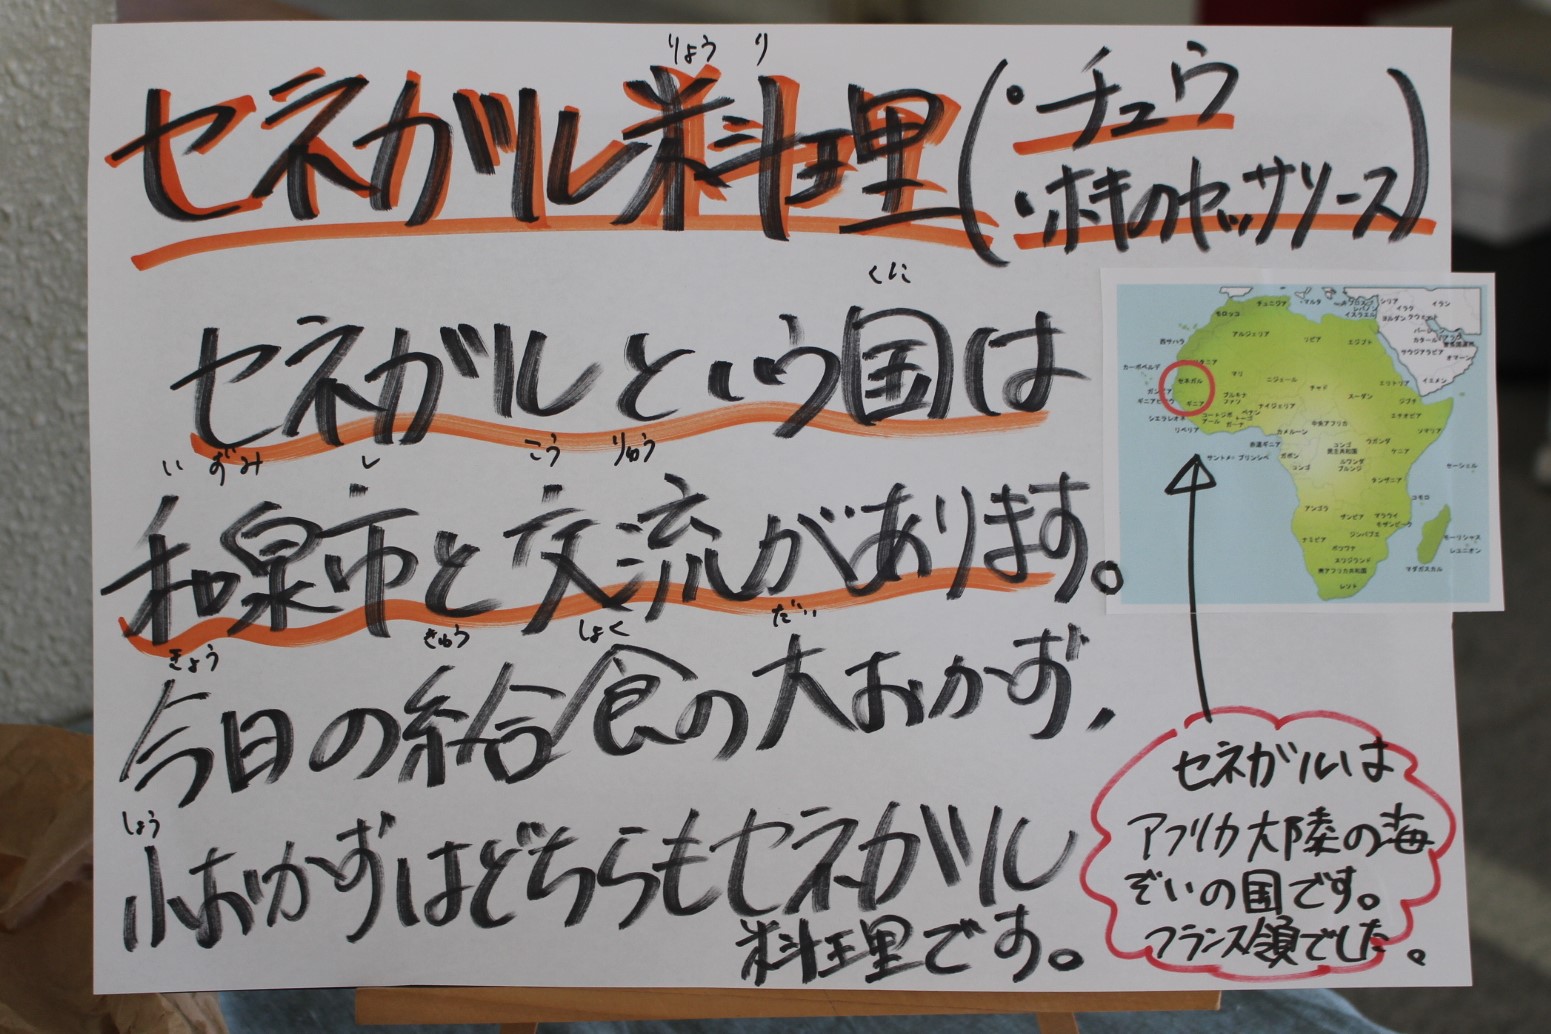 りょう り
セネガル料理(・チュウ
・ホキのセッサソース)
くに
セネガルという国は
いずみ し こう りゅう
和泉市と交流があります。
きょう きゅう しょく だい
今日の給食の大おかず、
しょう
小おかずはどちらもセネガル
料理です。
セネガルは
アフリカ大陸の海
ぞいの国です。
フランス領でした。
チュニジア
マルタ
シリア
イラク
イラン
モロッコ
イスラエル
ヨルダン
クウェート
アルジェリア
リビア
エジプト
サウジアラビア
オマーン
西サハラ
イエメン
カーボベルデ
セネガル
マリ
ニジェール
チャド
スーダン
エリトリア
ジブチ
ギニア
ナイジェリア
エチオピア
シエラレオネ
リベリア
カメルーン
中央アフリカ
ソマリア
赤道ギニア
ウガンダ
ケニア
サントメ・プリンシペ
ガボン
コンゴ
コンゴ
民主共和国
ルワンダ
ブルンジ
セーシェル
タンザニア
アンゴラ
ザンビア
マラウイ
モザンビーク
コモロ
ナミビア
ジンバブエ
ボツワナ
スワジランド
モーリシャス
レユニオン
マダガスカル
南アフリカ共和国
レソト